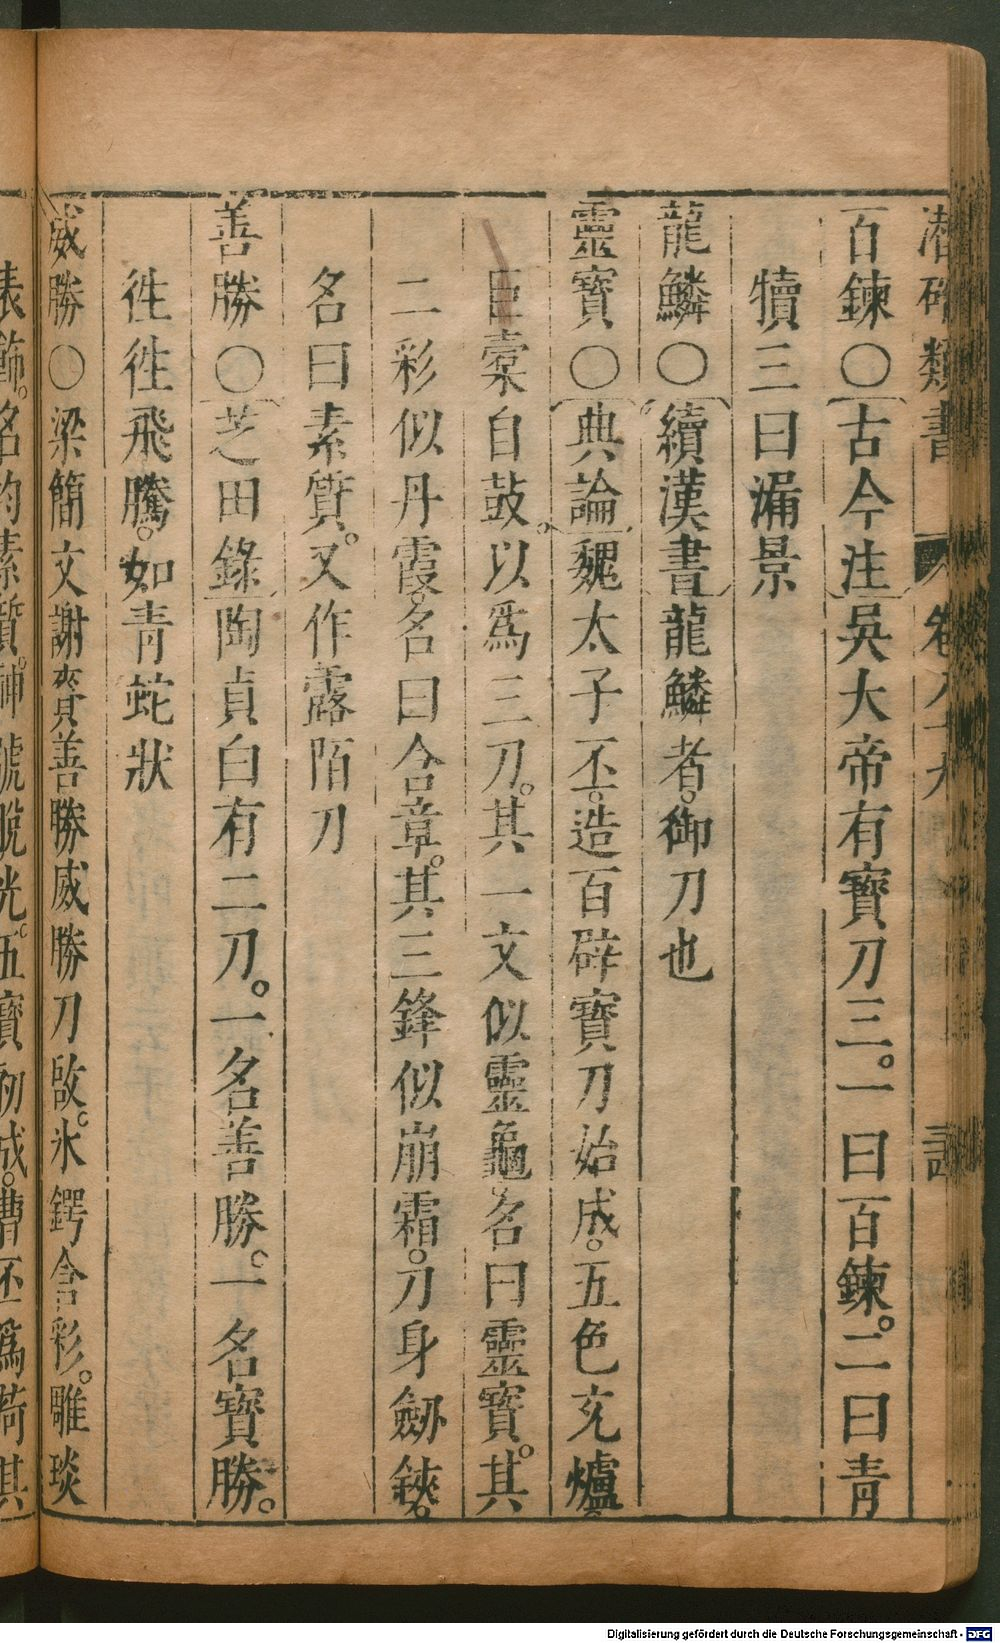 潜確類書 卷八十九
百鍊○古今注吳大帝有寶刀三。一曰百鍊。二曰青
犢三曰漏景
龍鱗○續漢書龍鱗者。御刀也
靈寶○典論魏太子丕。造百辟寶刀始成。五色充爐。
巨橐自鼓。以爲三刀。其一文似靈龜。名曰靈寶。其
二彩似丹霞。名曰含章。其三鋒似崩霜。刀身劒鋏。
名曰素質。又作露陌刀
善勝○芝田錄陶貞白有二刀。一名善勝。一名寶勝。
徃徃飛騰。如青蛇狀
威勝○梁簡文謝賚善勝威勝刀啟。氷鍔含彩。雕琰
表飾。名均素質。神號脫光。五寶初成。曹丕爲荷其
Digitalisierung gefördert durch die Deutsche Forschungsgemeinschaft - DFG